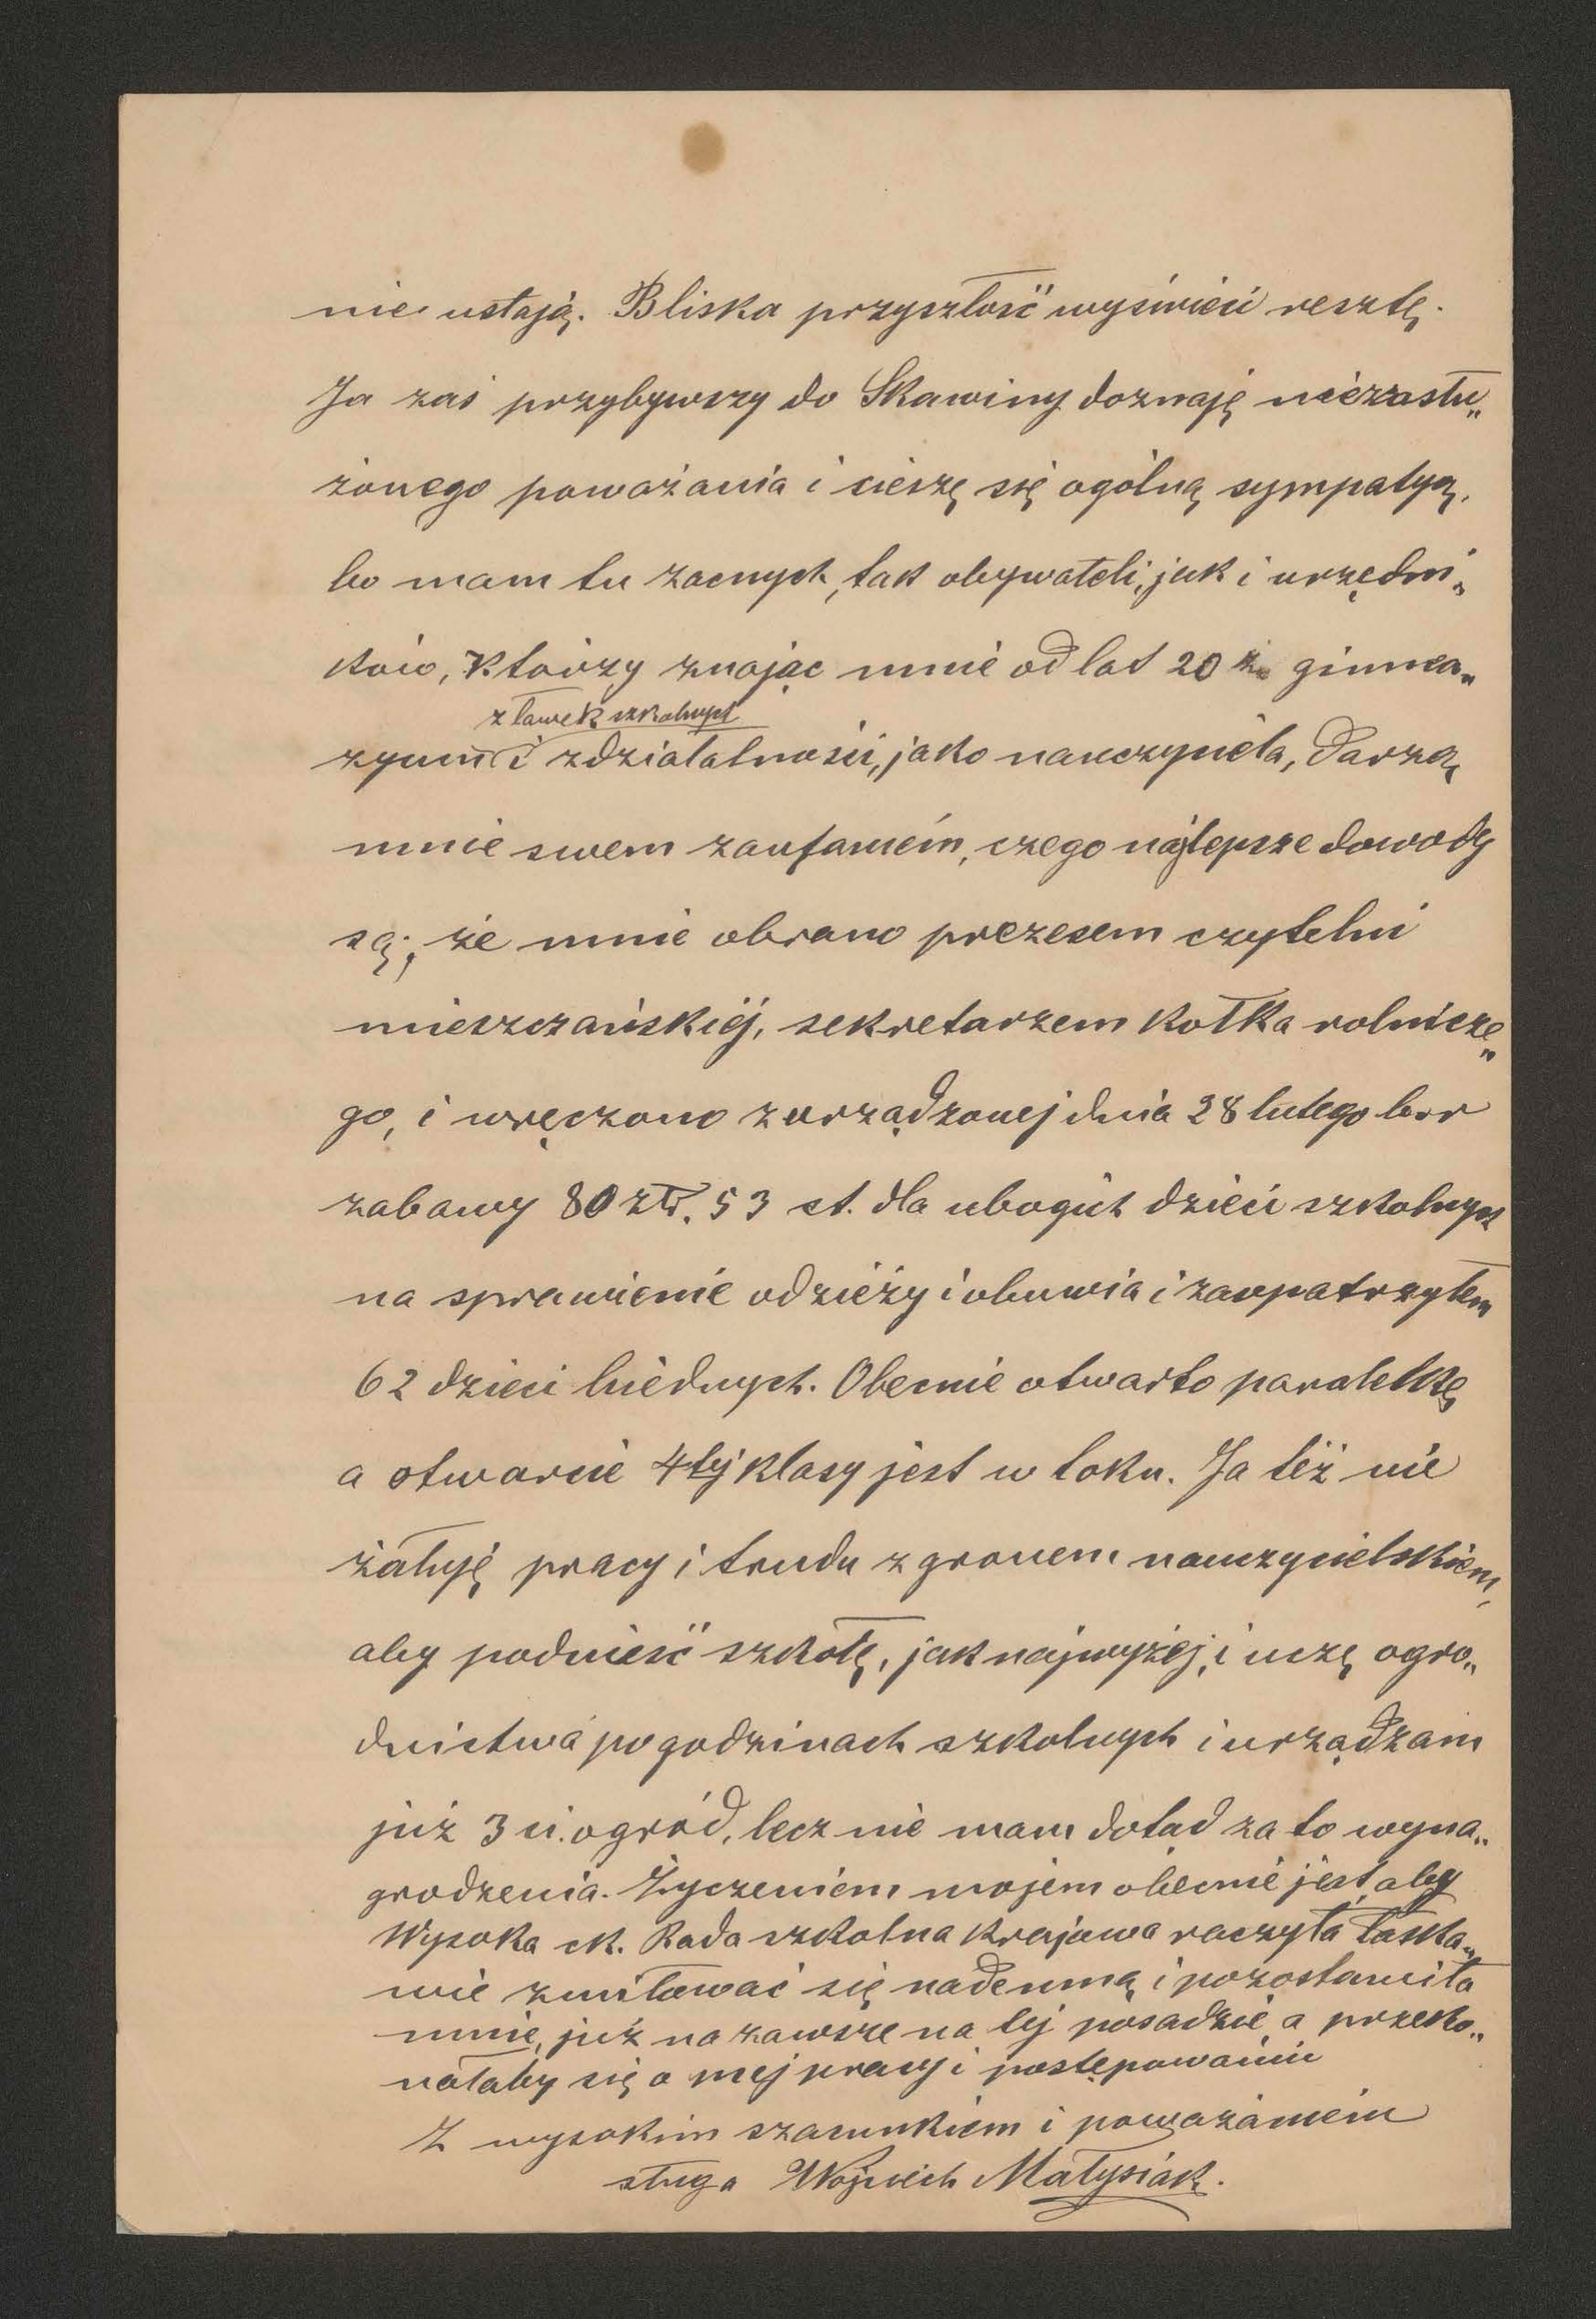 nie ustają. Bliska przyszłość wyświeci resztę.
Ja zaś przybywszy do Skawiny doznaję niezasłu„
żonego poważania i cieszę się ogólną sympatyą,
bo mam tu zacnych, tak obywateli, jak i urzędni„
ków, którzy znając mnie od lat 20 z gimna„
z ławek szkolnych
zyum i z działalności, jako nauczyciela, darzą
mnie swem zaufaniem, czego najlepsze dowody
są; że mnie obrano prezesem czytelni
mieszczańskiej, sekretarzem kołka rolnicze„
go, i wręczono z urządzonej dnia 28 lutego br
zabawy 80 złr. 53 ct. dla ubogich dzieci szkolnych
na sprawienie odzieży i obuwia i zaopatrzyłem
62 dzieci biednych. Obecnie otwarto paralelkę
a otwarcie 4tej klasy jest w toku. Ja też nie
żałuję pracy i trudu z gronem nauczycielskiem,
aby podnieść szkołę, jak najwyżej, i uczę ogro„
dnictwa po godzinach szkolnych i urządzam
już 3ci ogród, lecz nie mam dotad za to wyna„
grodzenia. Życzeniem mojem obecnie jest, aby
Wysoka ck. Rada szkolna krajowa raczyła łaska„
wie zmiłować się nademną i pozostawiła
mnie, już na zawsze na tej posadzie, a przeko„
nałaby się o mej pracy i postępowaniu
Z wysokim szacunkiem i poważaniem
sługa Wojciech Małysiak.